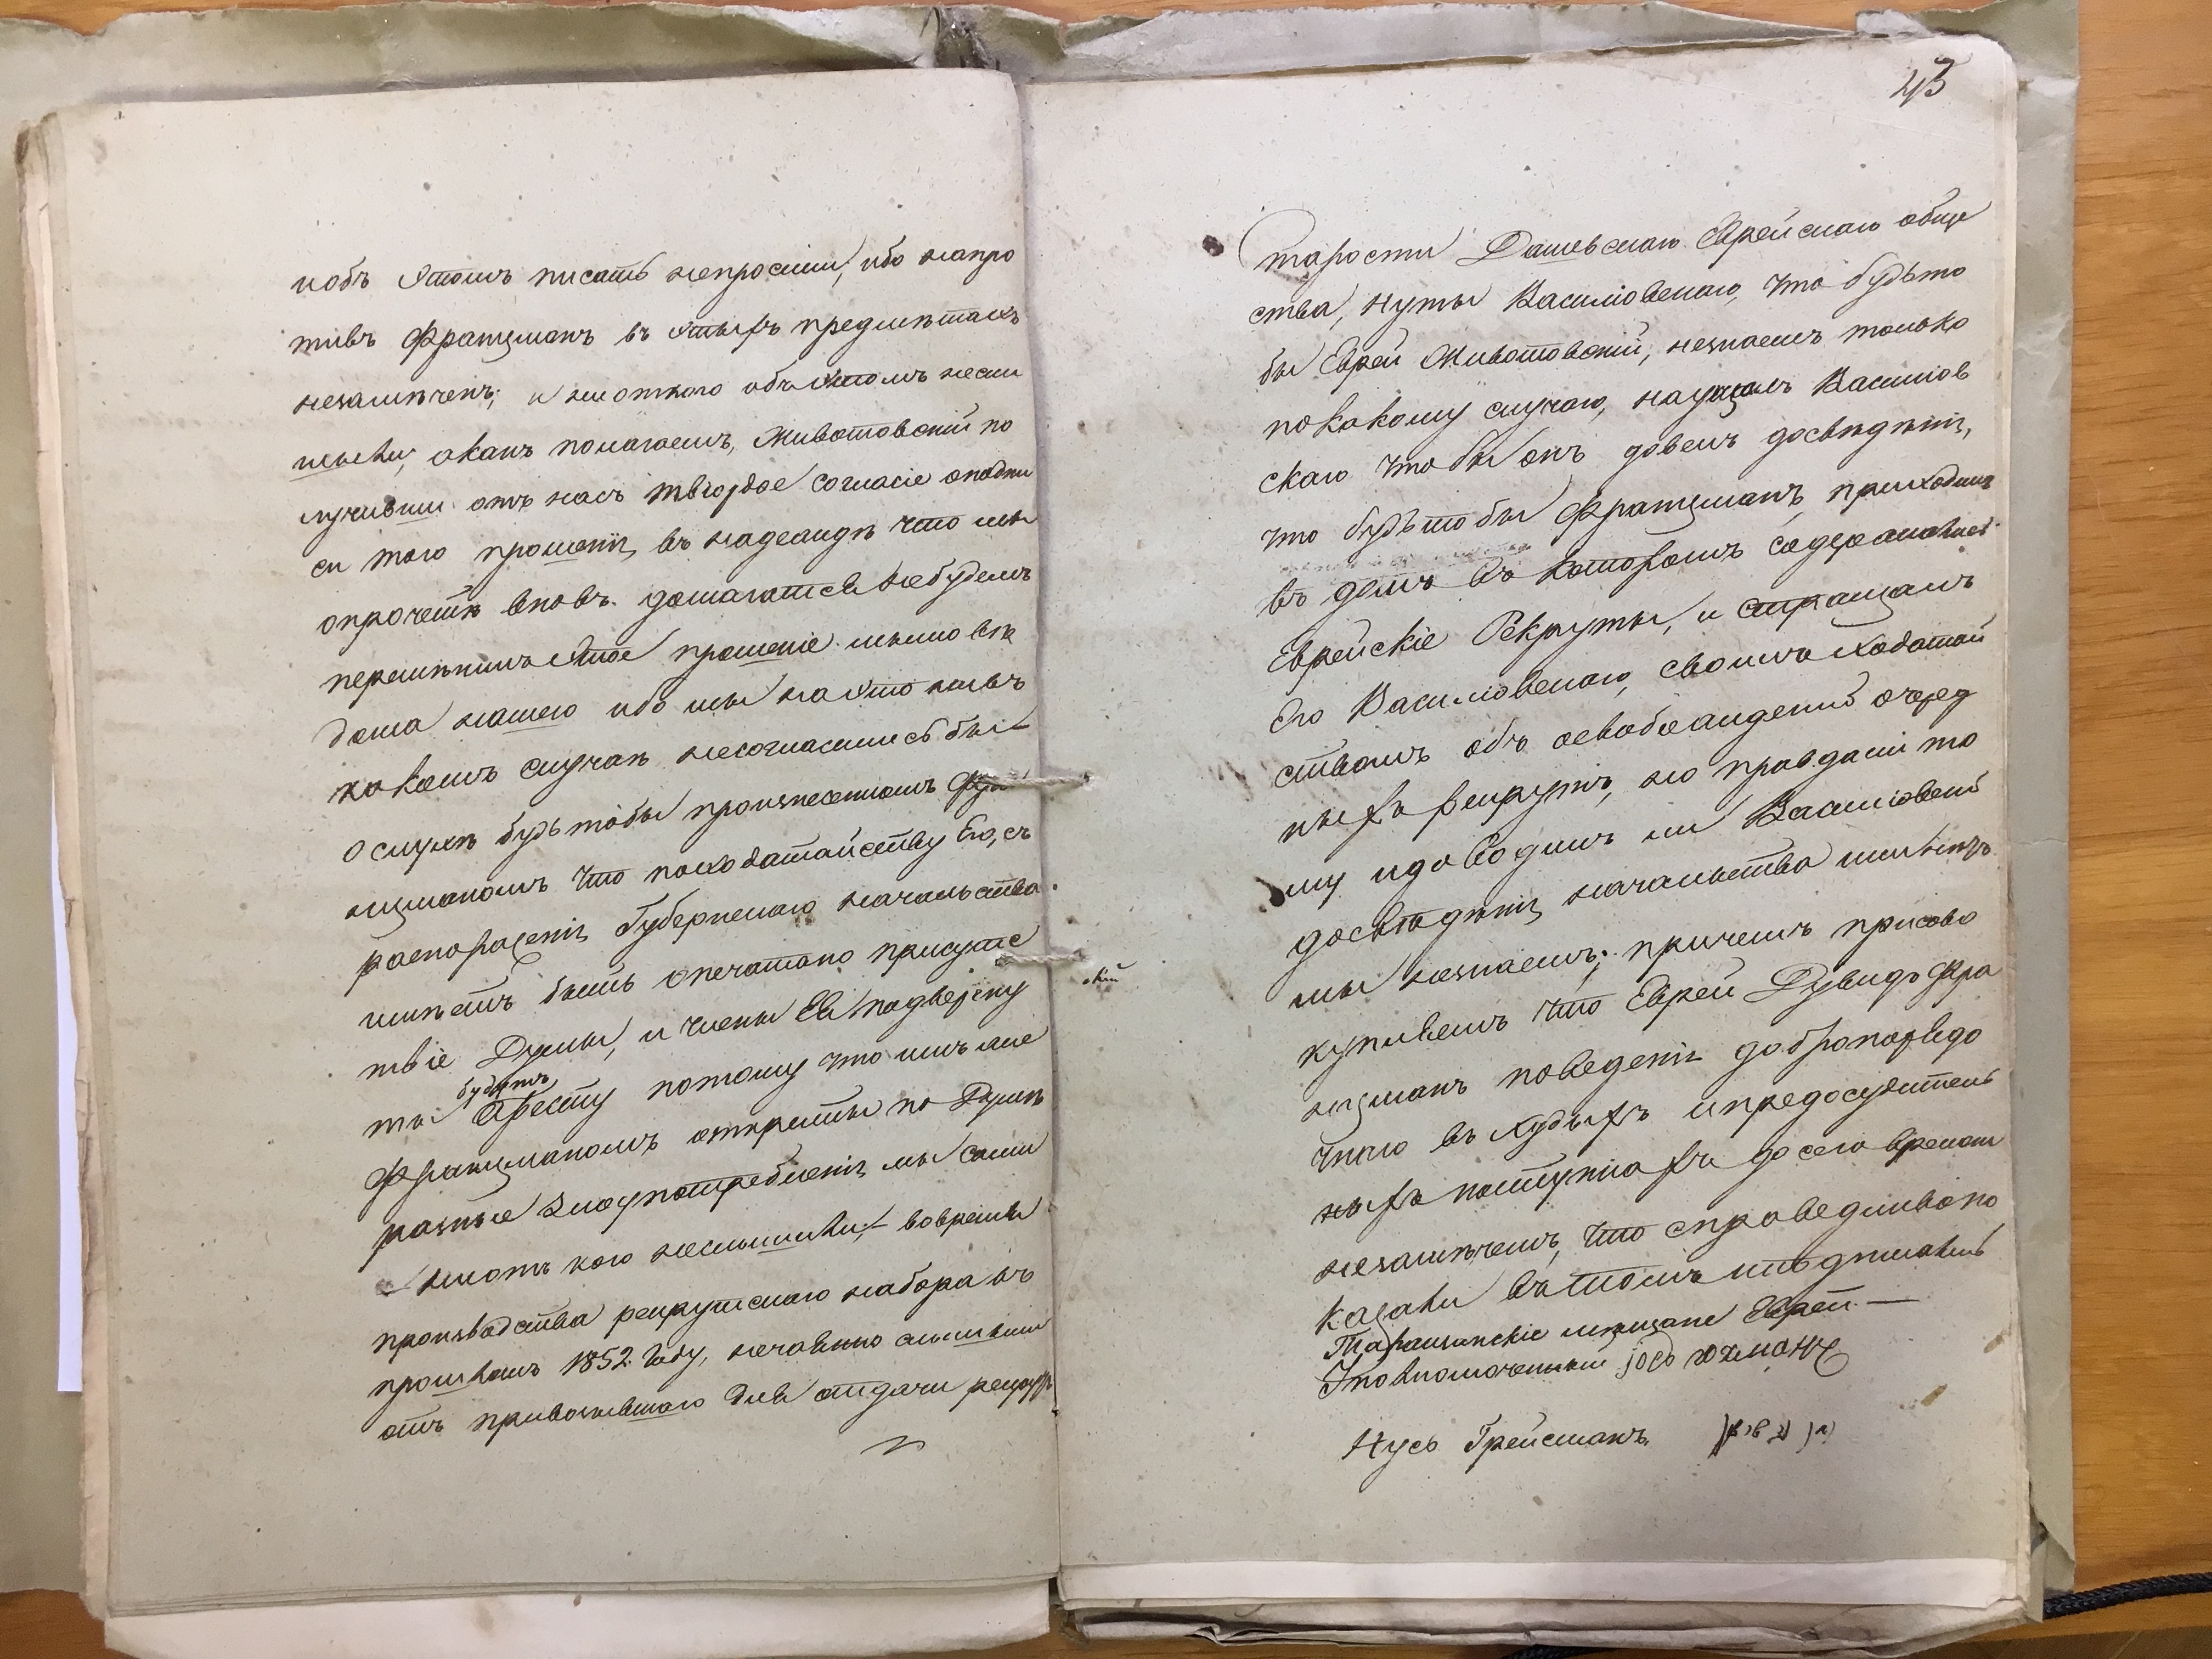 иобъ этомъ писать непросили, ибо напро
тивъ Францманъ въ этыхъ предметахъ
незамѣченъ; и ниоткого объ этомъ неслы
шали, а какъ полагаемъ, Животовскій по
лучивши отъ насъ твіордое согласіе
си того прошенія, въ надеждѣ что мы
опрочетѣ вновь домагатся небудемъ
перемѣнилъ этое прошеніе мимо вѣ
дома нашего ибо мы на это нивъ
какомъ случаѣ несогласились бы
О слухѣ будьтобы произнесенномъ Фра
нцманомъ что походатайству Его, съ
распораженія Губернскаго начальства
имѣетъ быть опечатано присутс
твіе Думы, и члены Ея подвержену
ты будутъ Аресту потому что имъ же
Францманомъ открыты по Думѣ
разные злоупотребленія, мы сами
ниотъ кого неслышали, вовремя
производства рекрутскаго набора въ
прошломъ 1852 Году, нечаянно слышали
отъ привозившаго для отдачи рекрутъ
43
Старосты Дашевскаго Еврейскаго обще
ства, Нуты Василіовскаго, что будьто
бы Еврей Животовскій, незнаемъ только
покакому случаю, научалъ Василіов
скаго чтобы онъ довелъ досвѣдѣнія,
что будьтобы Францманъ, приходилъ
въ домъ въ которомъ содержались
Еврейскіе Рекруты, и стращалъ
Его Василіовскаго, своимъ ходатай
ствомъ объ освобожденіи очеред
ныхъ рекрутъ, но правдали то
му идоводилъ ли Василіовскій
досвѣдѣнія начальства
мы незнаемъ; причемъ присово
купляемъ что Еврей Дувидъ Фра
нцманъ поведенія добропорядо
чнаго въ худыхъ ипредосудитель
ныхъ поступкахъ до сего времени
незамѣченъ, что справедливо по
казали въ томъ иподписались
Таращанскіе мѣщане Евреи —
Уповномоченный
Нусь Грейсманъ